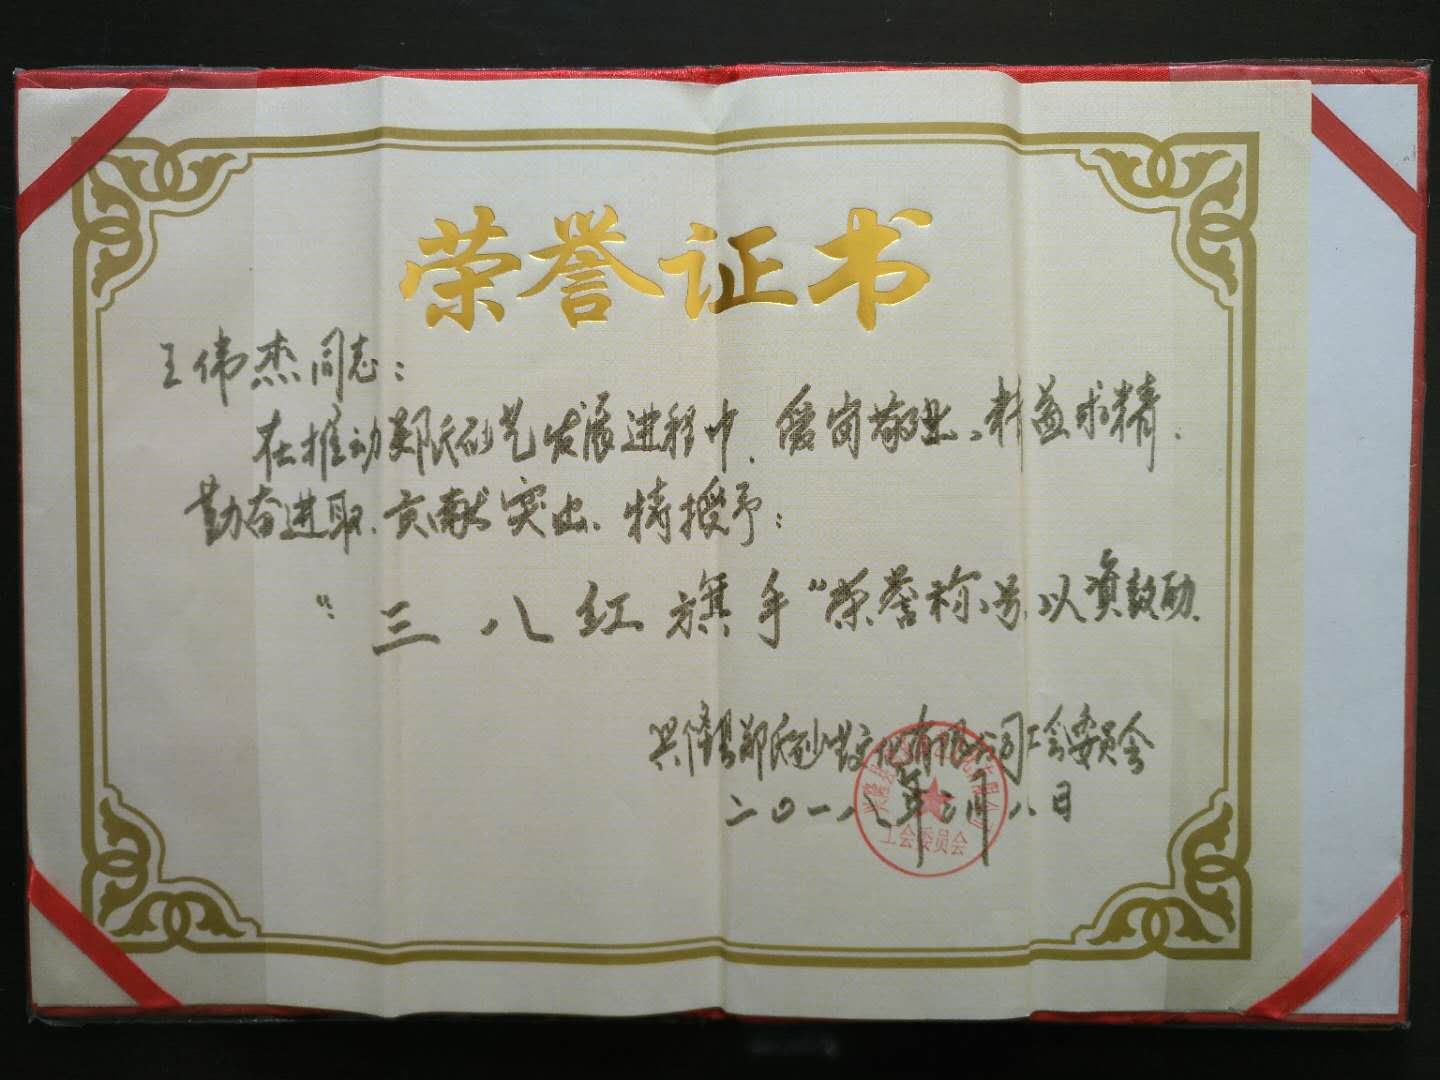 荣誉证书
王伟杰同志：
在推动郑氏砂艺发展进程中，爱岗敬业、精益求精、
勤奋进取、贡献突出、特授予：
“三八红旗手”荣誉称号，以资鼓励。
兴隆县郑氏砂艺文化有限公司工会委员会
二〇一八年三月八日
工会委员会